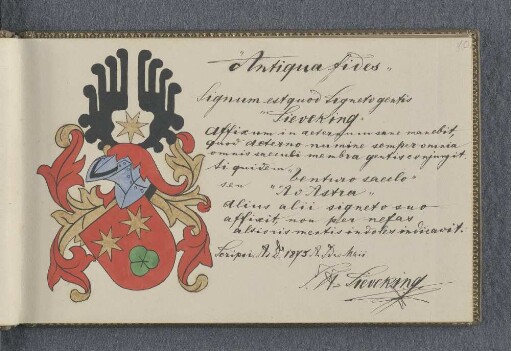 "Antiqua fides"
Signum est quod Signeto gentis
"Sieveking"
affixum in aeternum sane manebit,
quod aeterno numine semper omnia
omnis saeculi membra gentis conjungit.
At quidem "Venturo saeculo"
seu "Ad Astra"
alius alii signeto suo
affixit, non per nefas
altioris mentis indoles indicavit.
Scripsi 1875
Sieveking